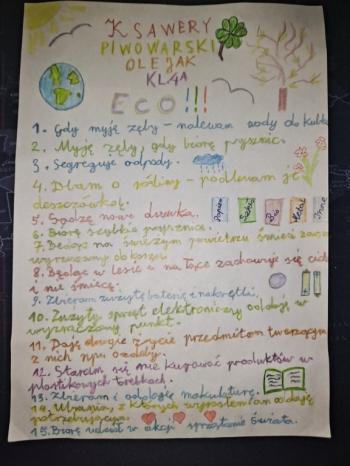 KSAWERY
PIWOWARSKI
OLEJAK
KL 4A
ECO!!!
1. Gdy myję zęby – nalewam wody do kubka
2. Myję zęby, gdy biorę prysznic.
3. Segreguję odpady.
4. Dbam o rośliny – podlewam je
deszczówką.
Papier Szkło Bio Metal Inne
5. Sadzę nowe drzewka.
6. Biorę szybkie prysznice.
7. Będąc na świeżym powietrzu śmieci zawsze
wyrzucamy do kosza.
8. Będąc w lesie i na łące zachowuję się cicho
i nie śmiecę.
9. Zbieram zużyte baterie i nakrętki.
10. Zużyty sprzęt elektroniczny oddaję w
wyznaczony punkt.
11. Daję drugie życie przedmiotom tworząc
z nich np. ozdoby.
12. Staram się nie kupować produktów w
plastikowych torebkach.
13. Zbieram i oddaję makulaturę.
14. Ubrania, z których wyrosłem oddaję
potrzebującym.
15. Biorę udział w akcji sprzątanie świata.